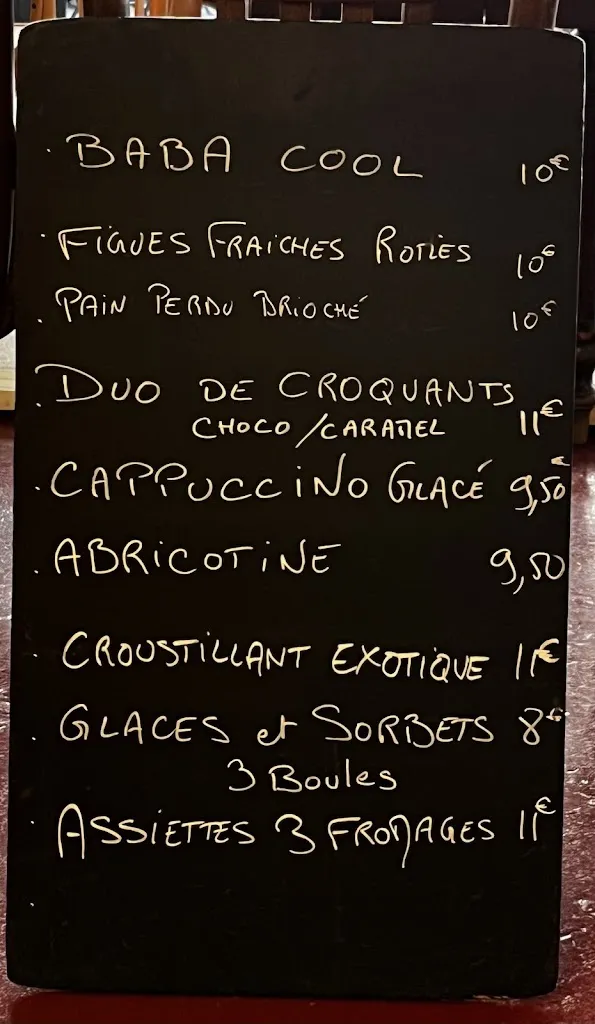 · BABA COOL 10€
· FIGUES FRAICHES ROTIES 10€
. PAIN PERDU BRIOCHÉ 10€
. DUO DE CROQUANTS
CHOCO/CARAMEL 11€
. CAPPUCCINO GLACÉ 9,50€
. ABRICOTINE 9,50
. CROUSTILLANT EXOTIQUE 11€
. GLACES et SORBETS 8€
3 Boules
· ASSIETTES 3 FROMAGES 11€